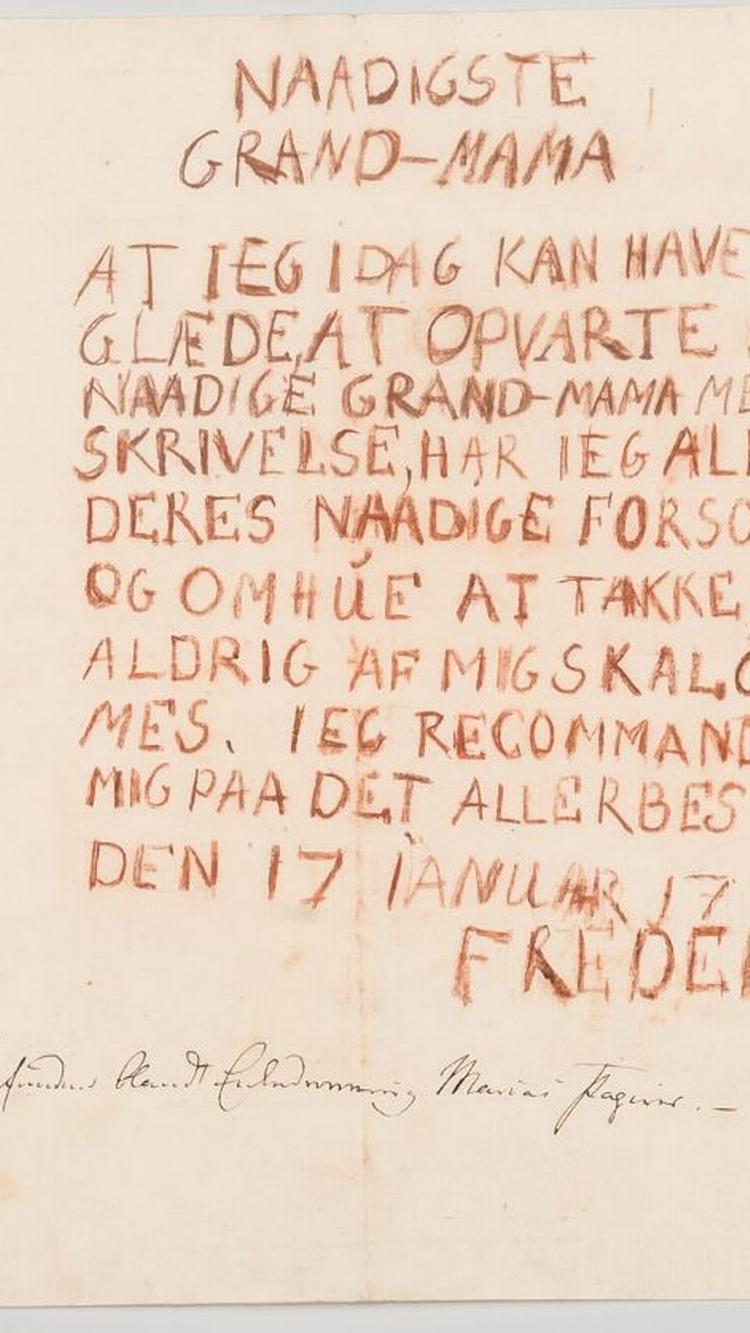 NAADIGSTE
GRAND-MAMA
AT IEG IDAG KAN HAVE
GLÆDE, AT OPVARTE
NAADIGE GRAND-MAMA ME
SKRIVELSE, HAR IEG ALL
DERES NAADIGE FORSO
OG OMHŬE AT TAKKE
ALDRIG AF MIG SKAL G
MES. IEG RECOMMAND
MIG PAA DET ALLERBES
DEN 17 IANUAR 17
FREDER
funden blandt Enkedronning Marias Papirer. —